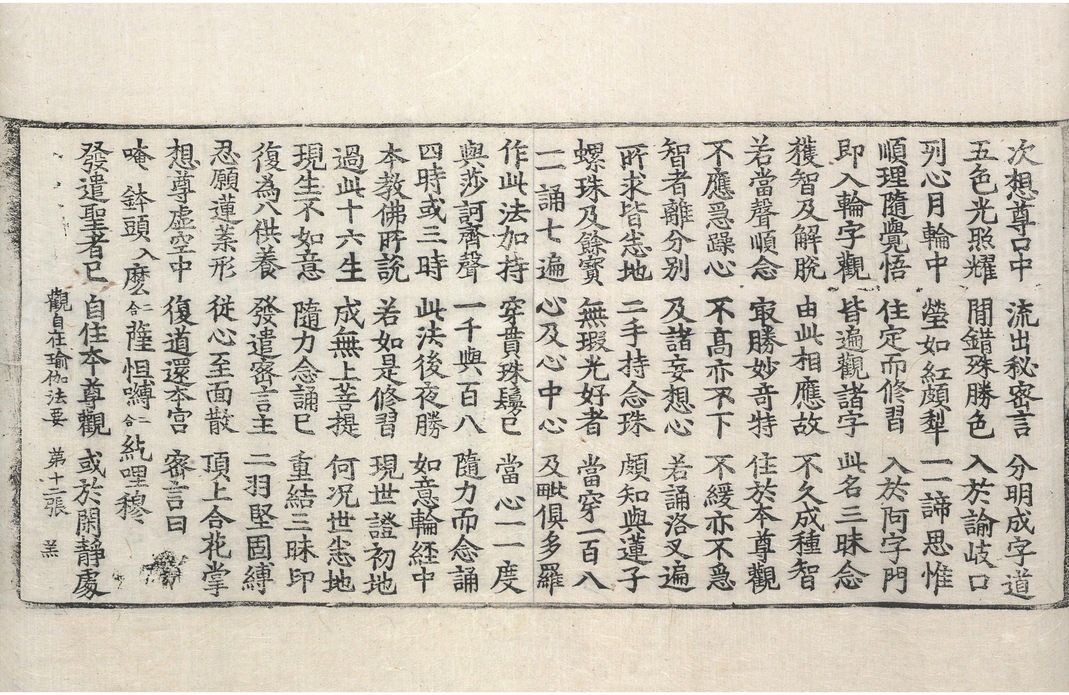 次想尊口中 流出秘密言 分明成字道
五色光照耀 間錯殊勝色 入於論岐口
列心月輪中 瑩如紅頗犁 一一諦思惟
順理隨覺悟 住定而修習 入於阿字門
即入輪字觀 皆遍觀諸字 此名三昧念
獲智及解脫 由此相應故 不久成種智
若當聲順念 㝡勝妙奇特 住於本尊觀
不應爲躁心 不高亦不下 不緩亦不急
智者離分別 及諸妄想心 若誦洛叉遍
所求皆悉地 二手持念珠 頗知與蓮子
螺珠及餘寶 無瑕光好者 當穿一百八
一一誦七遍 心及心中心 及毗俱多羅
作此法加持 穿貫珠鬘已 當心一一度
與莎訶齊聲 一千與百八 隨力而念誦
四時或三時 此法後夜勝 如意輪経中
本教佛所說 若如是修習 現世證初地
過此十六生 成無上菩提 何况世悉地
現生不如意 隨力念誦已 重結三昧印
復為八供養 發遣密言主 二羽堅固縛
忍願蓮葉形 從心至面散 頂上合花掌
想尊虛空中 復道還本宮 密言曰
唵 鉢頭入麼二合薩怛嚩二合 哩穆
發遣聖者已 自住本尊觀 或於閑静處
觀自在瑜伽法要 第十二張 羔